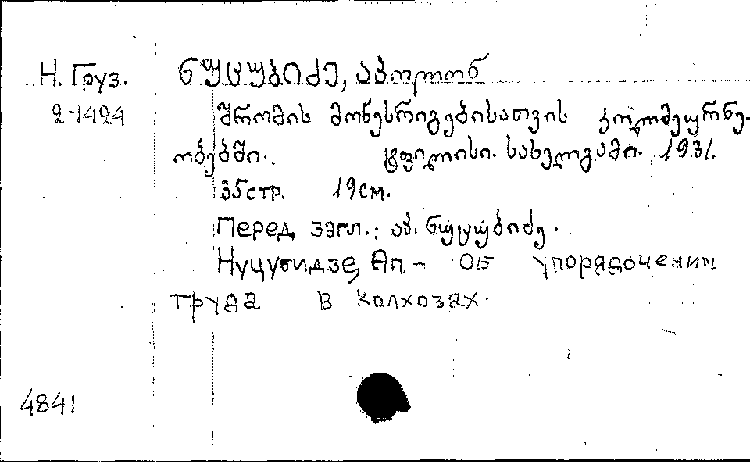 Н. Груз.
ნუცუბიძე, აპოლონ
2-1424
შრომის მოწესრიგებისათვის კოლმეურნე-
ობებში. ტფილისი. სახელგამი. 1931.
35стр. 19см.
Перед загл.: აპ. ნუცუბიძე.
Нуцубидзе, Ап.- Об упорядочении
труда в колхозах.
4841